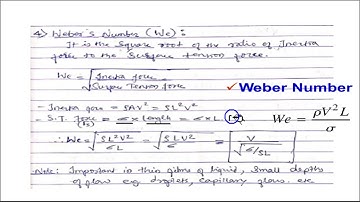 4) Weber's Number (We) :
It is the Square root of the ratio of Inertia
force to the Surface tension force.
We = √ Inertia force / Surface Tension force
✓ Weber Number
- Inertia force = ρAV² = ρL²V²
- S.T. force = σ × Length = σ × L
We = ρV²L / σ
∴ We = √ ρL²V² / σL = √ ρLV² / σ = V / √ σ/ρL
Note: Important in thin films of liquid, Small depths
of flow e.g. droplets, Capillary flows. etc